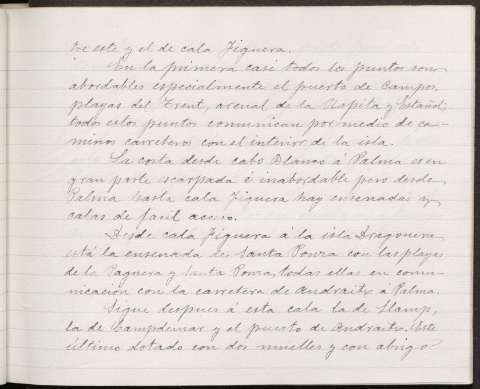 tre este y el de cala Figuera.
En la primera casi todos los puntos son
abordables especialmente el puerto de Campos,
playas del Trent, arenal de la Rapita y Estañol;
todos estos puntos comunican por medio de ca-
minos carreteros con el interior de la isla.
La costa desde cabo Blanco á Palma es en
gran parte escarpada é inabordable pero desde
Palma hasta cala Figuera hay ensenadas y
calas de facil acceso.
Desde cala Figuera á la isla Dragonera
está la ensenada de Santa Ponza con las playas
de la Paguera y Santa Ponza, todas ellas en comu-
nicacion con la carretera de Andraitx á Palma.
Sigue despues á esta cala la de Llamp,
la de Campdemar y el puerto de Andraitx. Este
último dotado con dos muelles y con abrigo